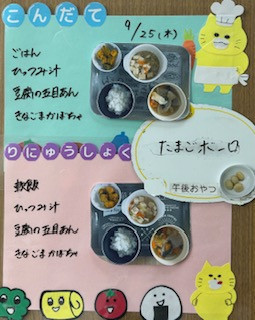 こんだて
9/25(木)
ごはん
ひっつみ汁
豆腐の五目あん
きなごまかぼちゃ
りにゅうしょく
たまごボーロ
午後おやつ
軟飯
ひっつみ汁
豆腐の五目あん
きなごまかぼちゃ